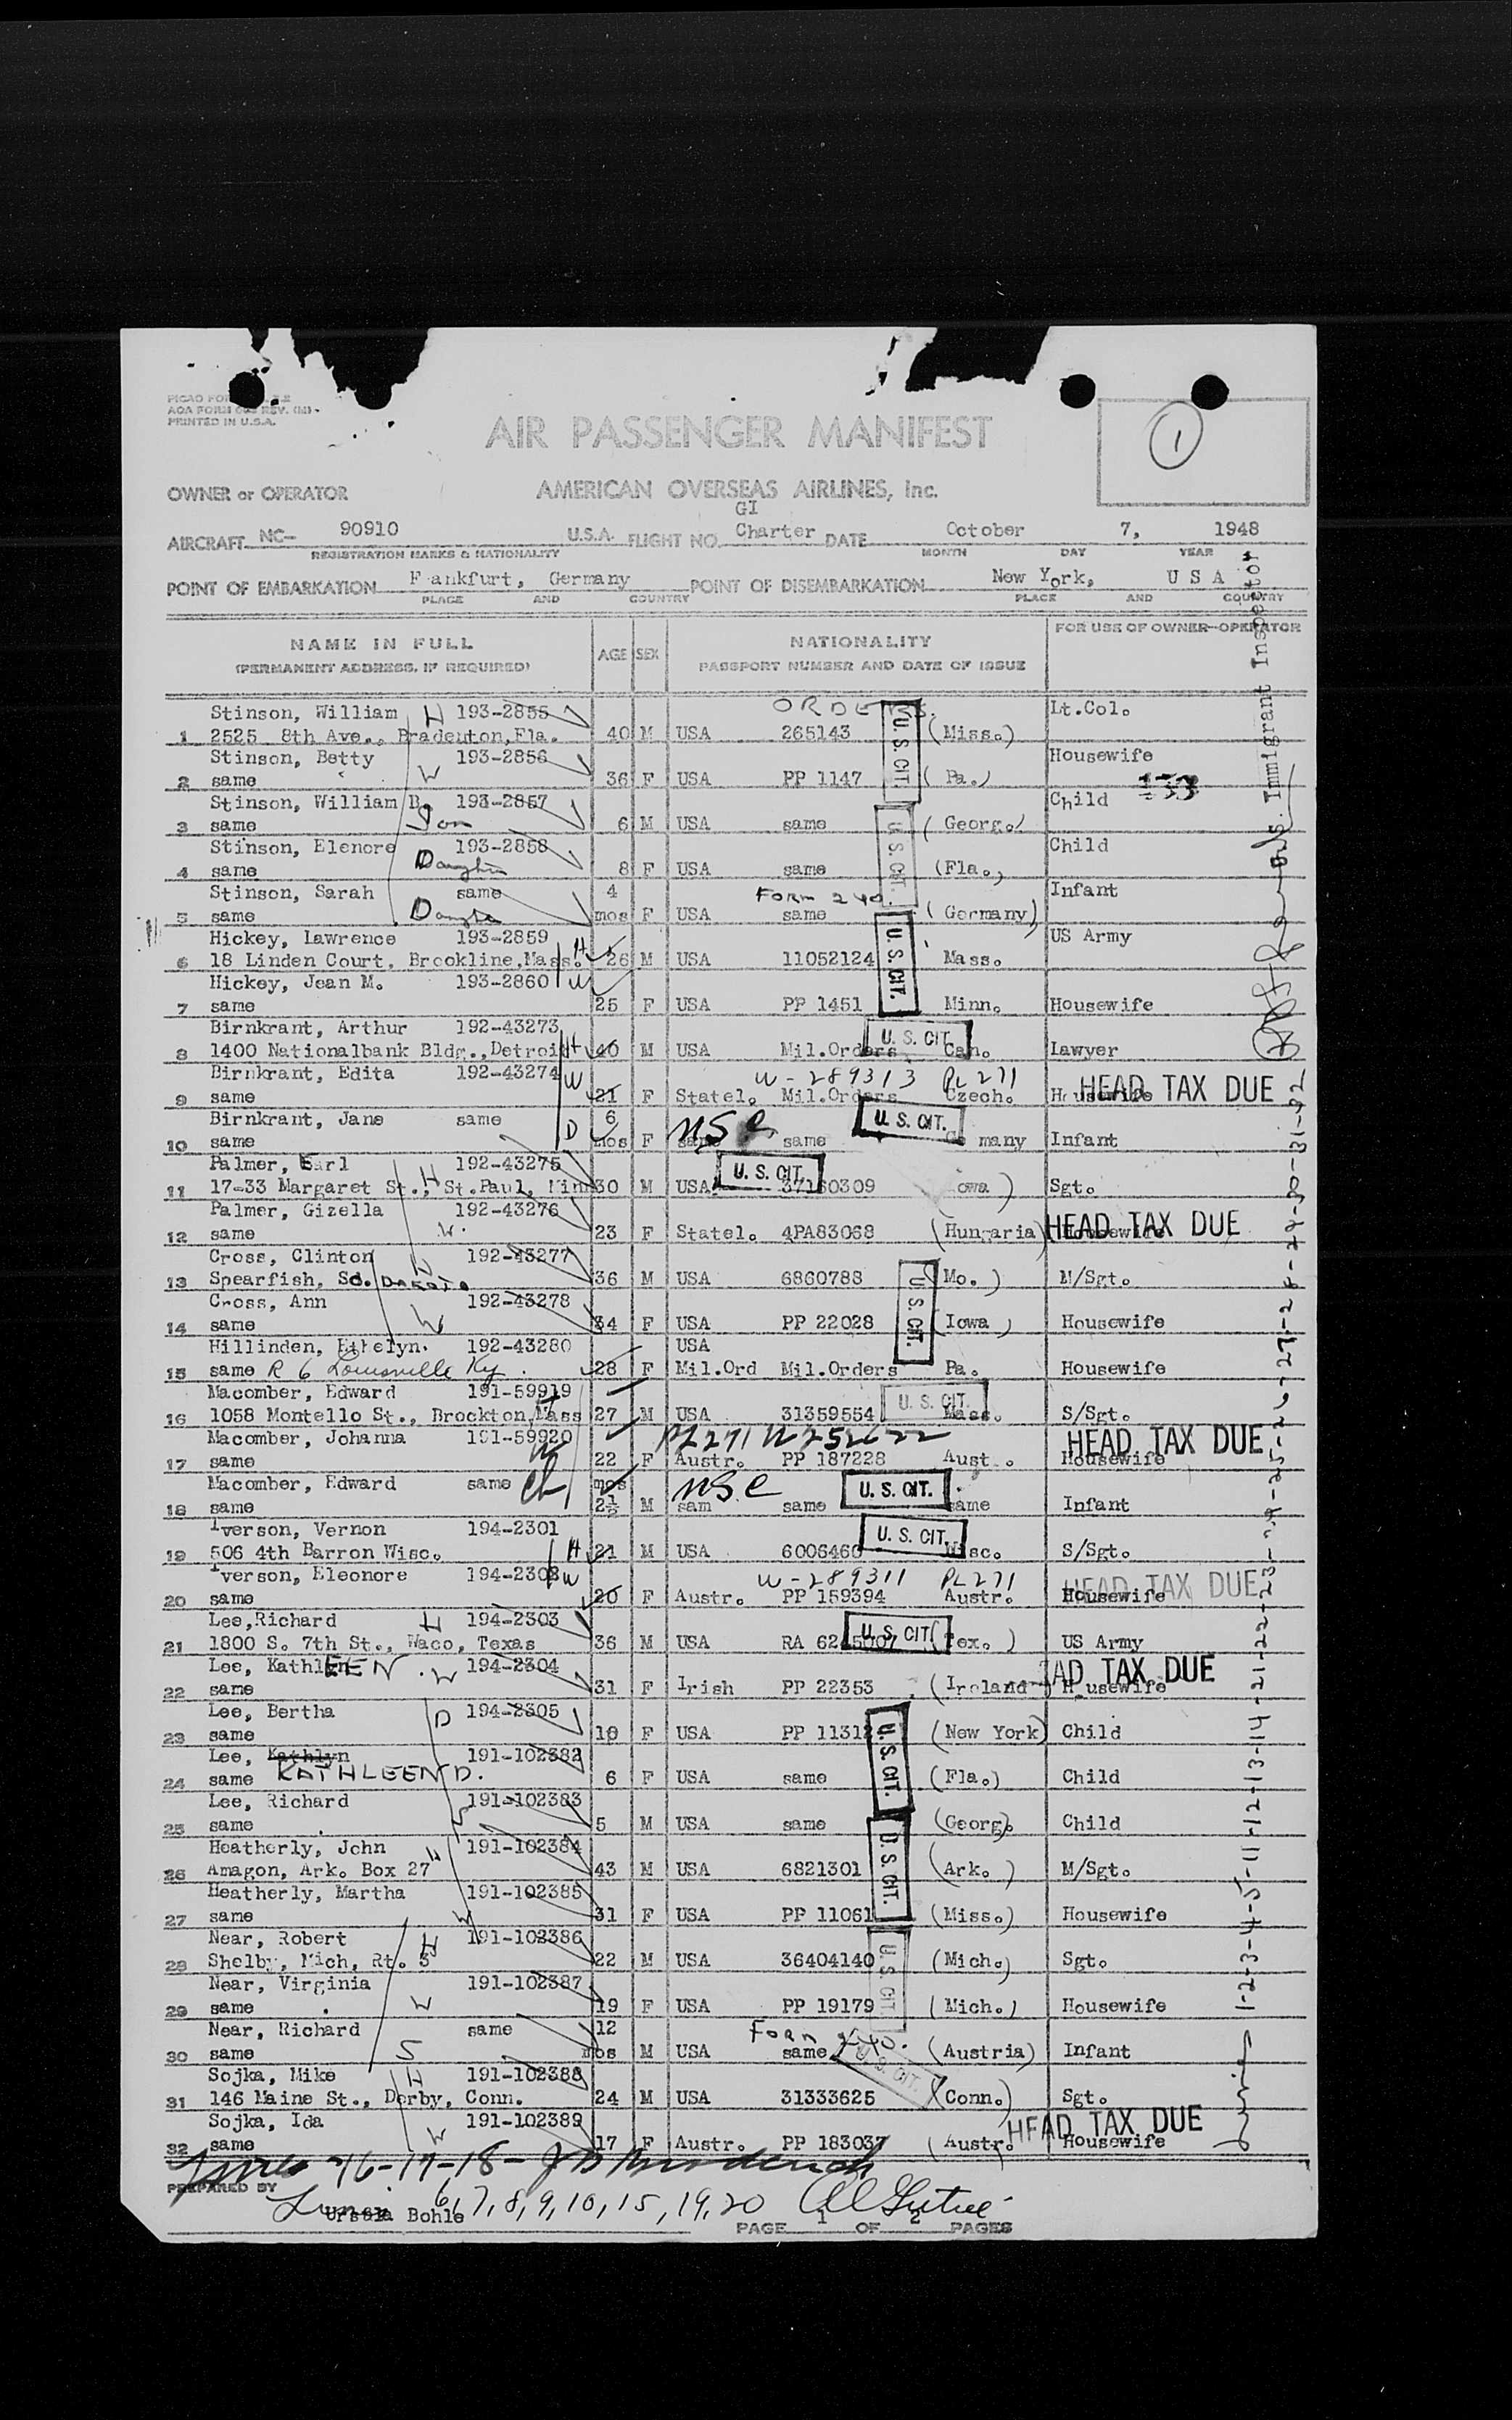 AIR PASSENGER MANIFEST
1
PRINTED IN U.S.A.
OWNER or OPERATOR AMERICAN OVERSEAS AIRLINES, Inc.
GI
AIRCRAFT NC- 90910 U.S.A. FLIGHT NO. Charter DATE October 7, 1948
REGISTRATION MARKS & NATIONALITY MONTH DAY YEAR
POINT OF EMBARKATION F ankfurt, Germany POINT OF DISEMBARKATION New York, U S A
PLACE AND COUNTRY PLACE AND COUNTRY
NAME IN FULL AGE SEX NATIONALITY FOR USE OF OWNER-OPERATOR
(PERMANENT ADDRESS, IF REQUIRED) PASSPORT NUMBER AND DATE OF ISSUE
Immigrant Inspector
ORDERS.
Stinson, William H 193-2855 Lt.Col.
1 2525 8th Ave., Bradenton,Fla. 40 M USA 265143 U. S. CIT. (Miss.)
Stinson, Betty 193-2856 Housewife
2 same W 36 F USA PP 1147 (Pa.)
Stinson, William B. 193-2857 Child
3 same Son 6 M USA same (Georg.)
Stinson, Elenore 193-2858 Child
4 same Daughter 8 F USA same U. S. CIT. (Fla.)
Stinson, Sarah same 4 Form 240. Infant
5 same mos F USA same (Germany)
Hickey, Lawrence 193-2859 US Army
6 18 Linden Court, Brookline,Mass. H 26 M USA 11052124 U. S. CIT. Mass.
Hickey, Jean M. 193-2860 W
7 same 25 F USA PP 1451 Minn. Housewife
Birnkrant, Arthur 192-43273
8 1400 Nationalbank Bldg.,Detroit H 40 M USA Mil.Orders U. S. CIT. Can. Lawyer
Birnkrant, Edita 192-43274 W W-289313 PL271
9 same 21 F Statel. Mil.Orders Czech. Housewife HEAD TAX DUE
Birnkrant, Jane same 6 U. S. CIT.
10 same D mos F same same Ge many Infant
Palmer, Earl 192-43275 U. S. CIT.
11 17-33 Margaret St., St.Paul, Minn H 30 M USA 37160309 owa) Sgt.
Palmer, Gizella 192-43276
12 same W. 23 F Statel. 4PA83068 (Hungaria) Housewife HEAD TAX DUE
Cross, Clinton H 192-43277
13 Spearfish, So. DAKOTA 36 M USA 6860788 (Mo.) M/Sgt.
Cross, Ann 192-43278 U. S. CIT.
14 same W 34 F USA PP 22028 (Iowa) Housewife
Hillinden, Ethelyn. 192-43280 USA
15 same R 6 Louisville Ky. 28 F Mil.Ord Mil.Orders Pa. Housewife
Macomber, Edward 191-59919 U. S. CIT.
16 1058 Montello St., Brockton,Mass 27 M USA 31359554 Mass. S/Sgt.
Macomber, Johanna 191-59920 PL271 W252622
17 same W 22 F Austr. PP 187228 Aust . Housewife HEAD TAX DUE
Macomber, Edward same ch mos U. S. CIT.
18 same 2½ M sam same same Infant
Iverson, Vernon 194-2301 U. S. CIT.
19 506 4th Barron Wisc. H 21 M USA 6006466 Wisc. S/Sgt.
Iverson, Eleonore 194-2302 W W-289311 PL271
20 same 20 F Austr. PP 159394 Austr. Housewife HEAD TAX DUE
Lee,Richard H 194-2303 U. S. CIT.
21 1800 S. 7th St., Waco, Texas 36 M USA RA 6245007 (Tex.) US Army
Lee, KathlEEN W 194-2304
22 same 31 F Irish PP 22353 (Ireland) H usewife AD TAX DUE
Lee, Bertha D 194-2305
23 same 10 F USA PP 1131 U. S. CIT. (New York) Child
Lee, Kathlyn 191-102382
24 same KATHLEEN D. 6 F USA same (Fla.) Child
Lee, Richard 191-102383
25 same S 5 M USA same (Georg. Child
Heatherly, John H 191-102384
26 Amagon, Ark. Box 27 43 M USA 6821301 U. S. CIT. (Ark.) M/Sgt.
Heatherly, Martha 191-102385
27 same W 31 F USA PP 11061 (Miss.) Housewife
Near, Robert H 191-102386
28 Shelby, Mich, Rt. 3 22 M USA 36404140 U. S. CIT. (Mich.) Sgt.
Near, Virginia 191-102387
29 same W 19 F USA PP 19179 (Mich.) Housewife
Near, Richard same 12 Form 240.
30 same S mos M USA same U. S. CIT. (Austria) Infant
Sojka, Mike H 191-102388
31 146 Maine St., Derby, Conn. 24 M USA 31333625 (Conn.) Sgt.
Sojka, Ida 191-102389
32 same W 17 F Austr. PP 183037 (Austr. Housewife HEAD TAX DUE
16-17-18-
PREPARED BY
Ursula Bohle 6,7,8,9,10,15,19,20
PAGE 1 OF 2 PAGES